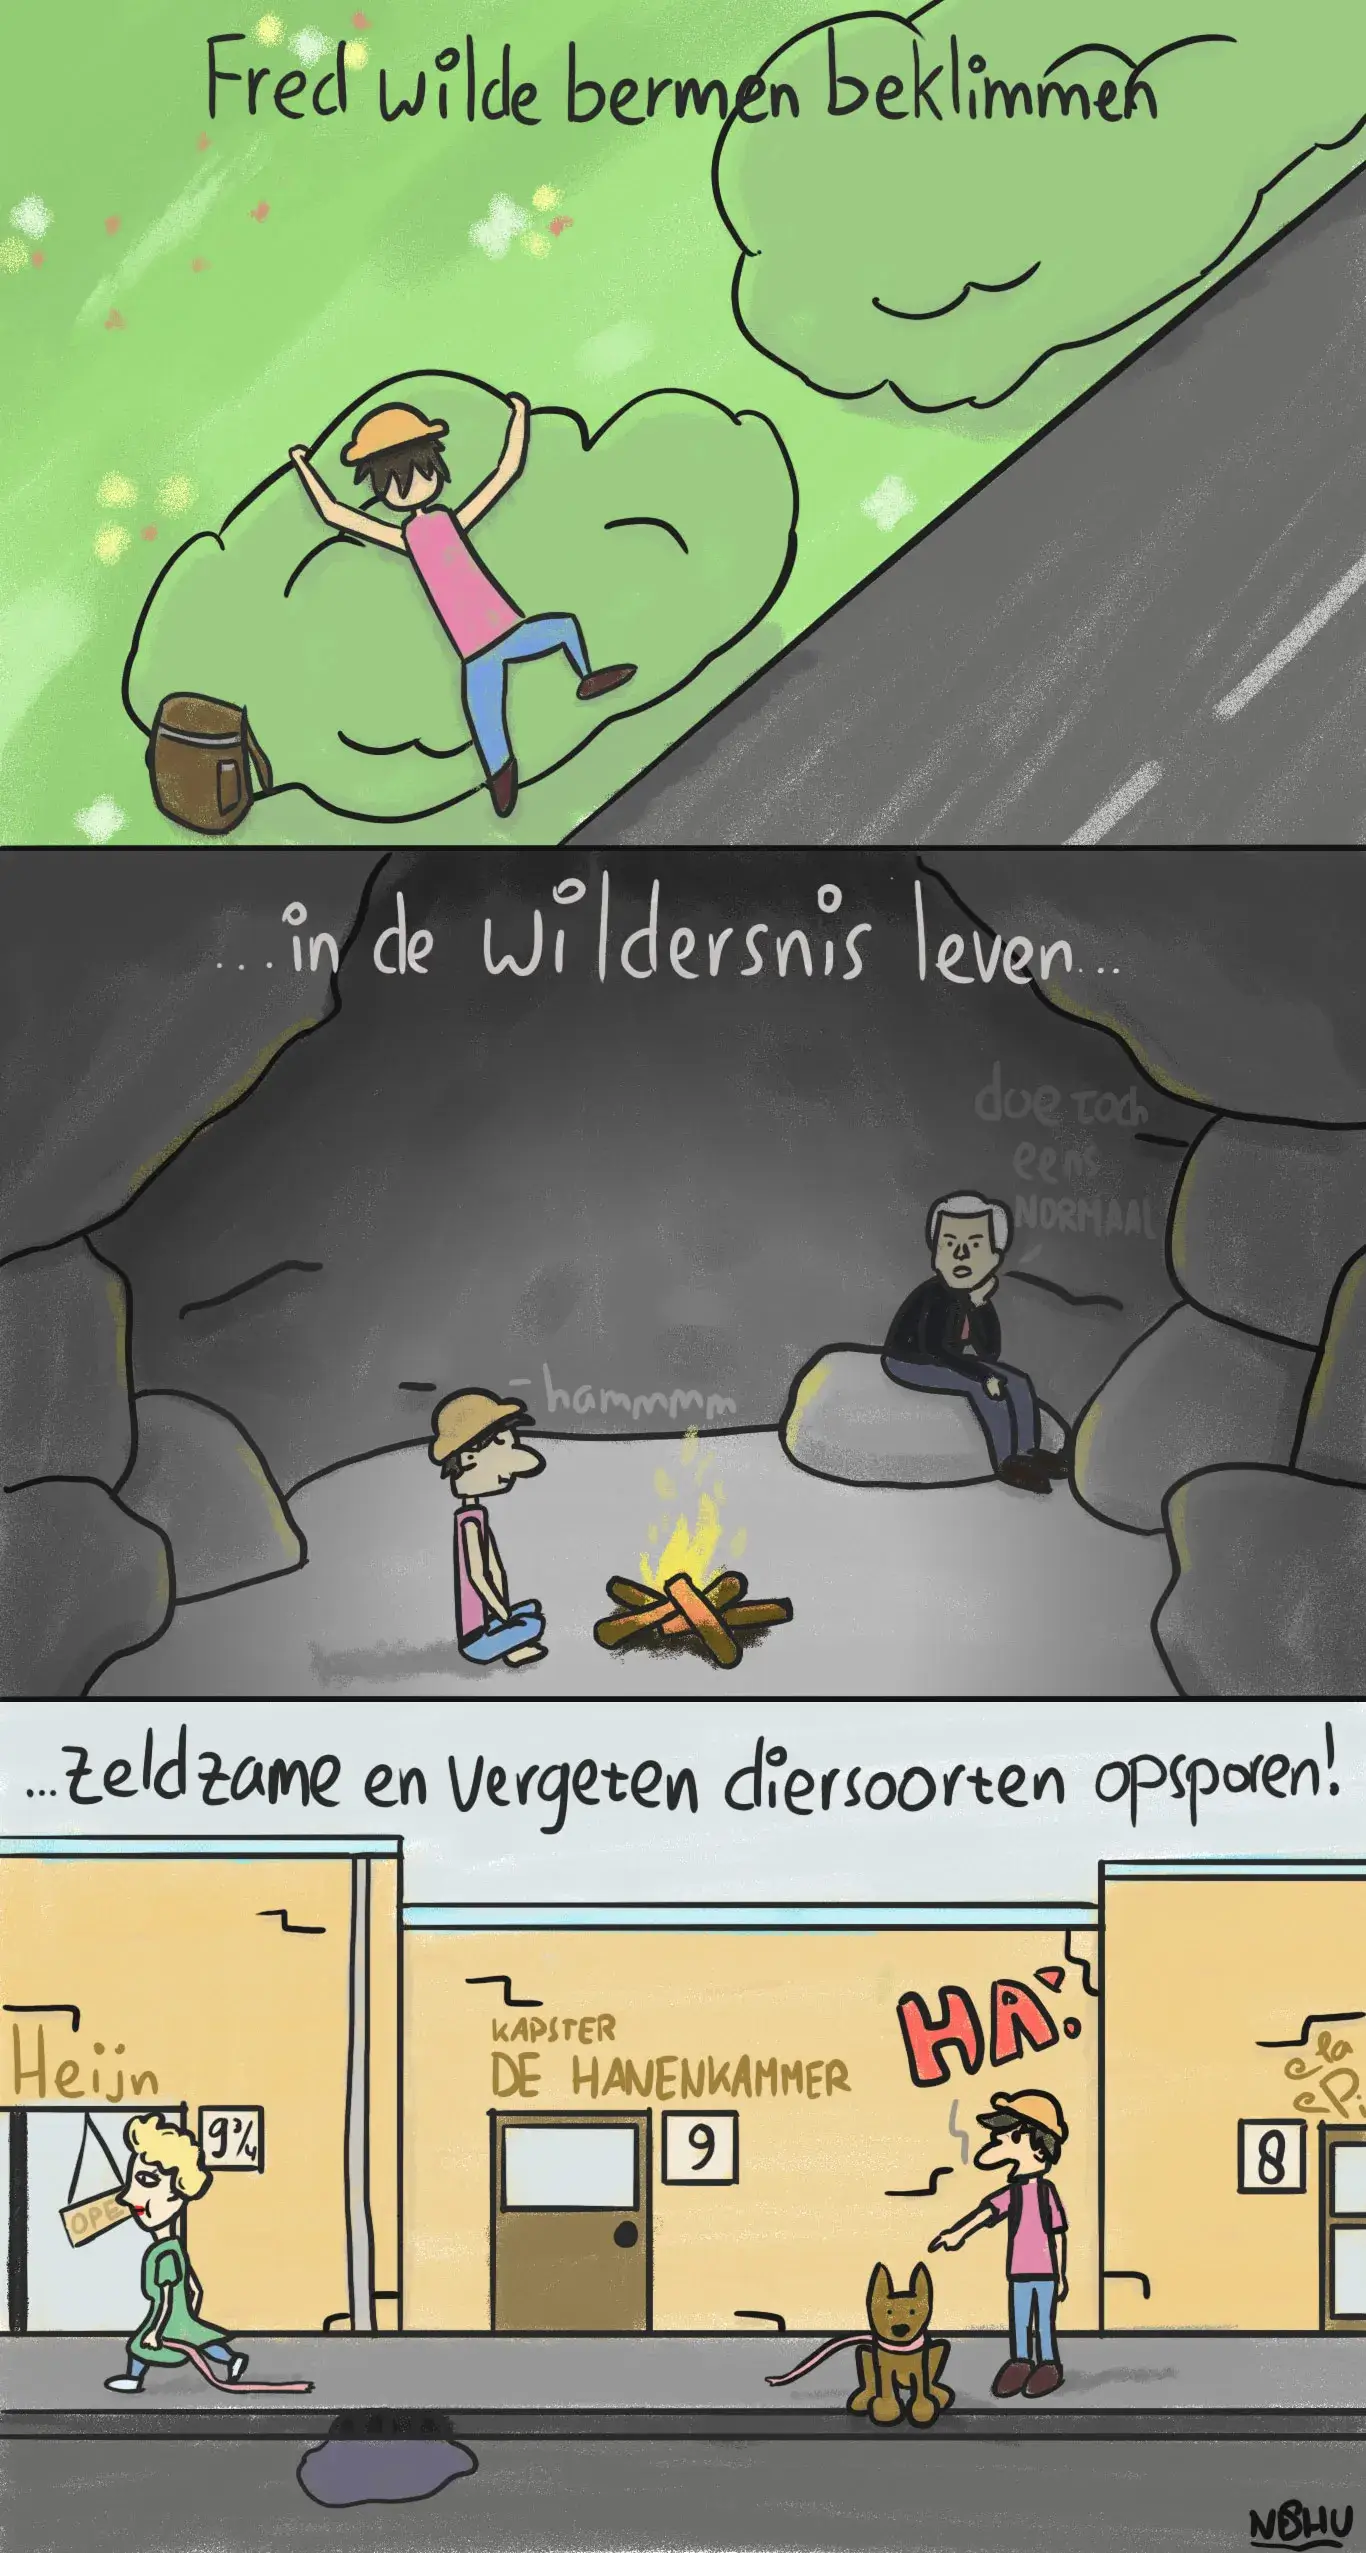 Fred wilde bermen beklimmen
...in de wildersnis leven...
doe toch
eens
NORMAAL
-hammmm
...zeldzame en vergeten diersoorten opsporen!
HA!
KAPSTER
DE HANENKAMMER
Heijn
9 3/4
OPE
9
8
la
NBHU